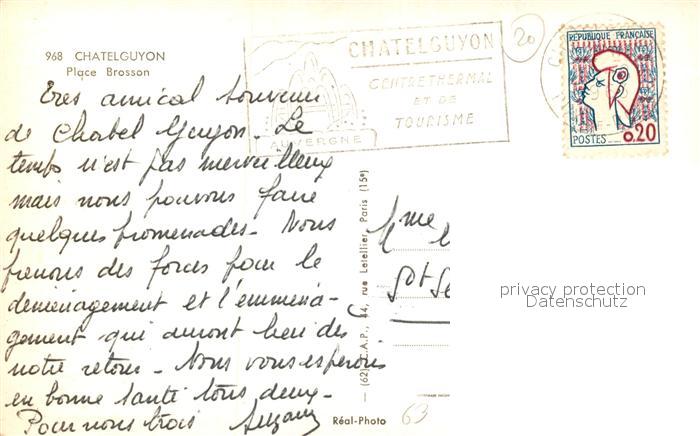 968 CHATELGUYON
Place Brosson
CHATELGUYON
CENTRE THERMAL
ET DE
TOURISME
AUVERGNE
20
REPUBLIQUE FRANÇAISE
POSTES
0,20
Très amical souvenir
de Chatel Guyon. Le
temps n'est pas merveilleux
mais nous pouvons faire
quelques promenades. Nous
prenons des forces pour le
déménagement et l'emména-
gement qui auront lieu dès
notre retour. Nous vous espérons
en bonne santé tous deux.
Pour nous trois Suzanne
(62) 44, rue Letellier, Paris (15e)
Mme
privacy protection
Datenschutz
Réal-Photo
63